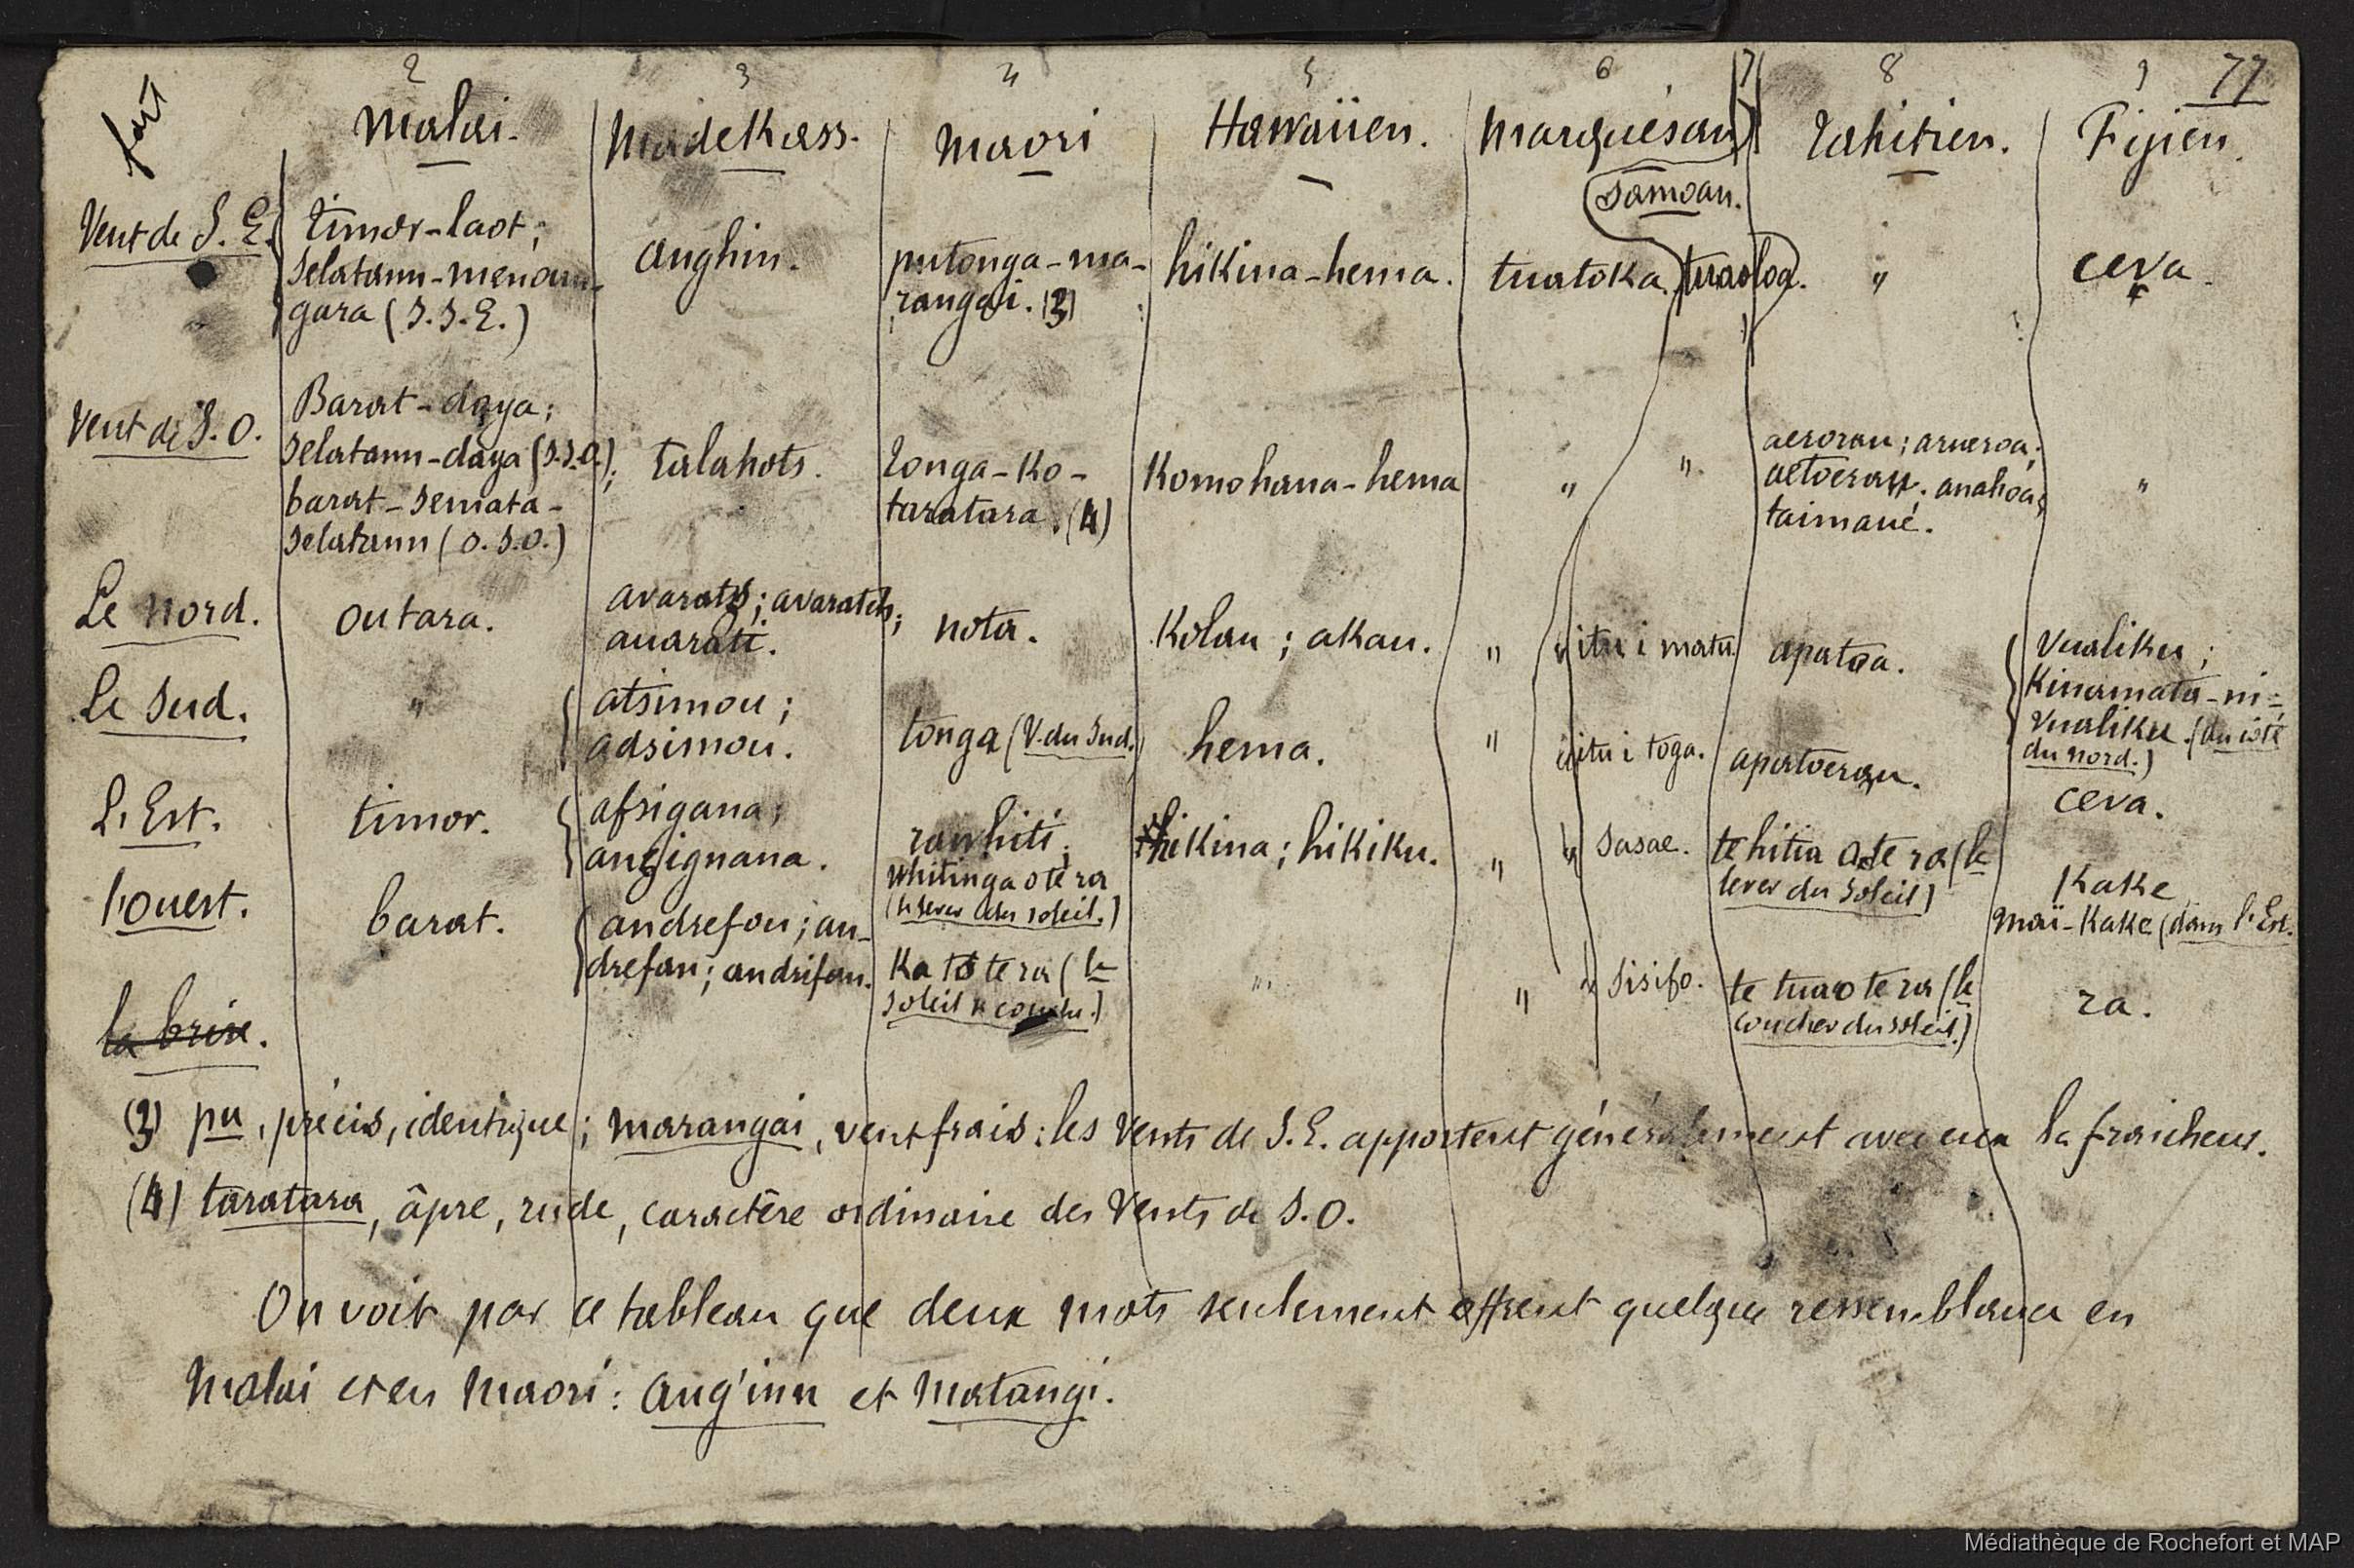 2 3 4 5 6 7 8 9 77
fait
Malai. Madekass. Maori Hawaiien. Marquésan Tahitien. Fijien.
Samoan.
Vent de S. E. timor-laot; anghin. putonga-ma- hikina-hema. tuatoka. tuaoloa. " ceva.
selatann-menan-
gara (S.S.E.) rangai. (3)
Vent de S.O. Barat-daya; talahots. tonga-ko- Komohana-hema " " aerorau; arueroa;
selatann-daya (S.S.O.); taratara. (4) aetoerau. anahoa; "
barat-semata- taimaué.
selatann (O.S.O.)
Le Nord. outara. avarats; avaratch; nota. Kolau; akau. " itu i matu. apatoa. vualiku;
auarati. Kinamata-ni-
vualiku. (du côté
du nord.)
Le Sud. " atsimou; tonga (V. du Sud.) hema. " itu i toga. apatoerau. ceva.
adsimou.
L'Est. timor. afsigana; rawhiti; hikina; hikiku. " sasae. te hitia o te ra (le Kake
angignana. whitinga o te ra lever du soleil) maï-Kake (dans l'Est.
(le lever du soleil.)
l'ouest. barat. andrefou; an- Ka to te ra (le " " sisifo. te tuao te ra (le ra.
drefan; andrifan. soleil se couche.) coucher du soleil.)
la brise.
(3) pu, précis, identique; marangai, vent frais: les vents de S.E. apportent généralement avec eux la fraicheur.
(4) taratara, âpre, rude, caractère ordinaire des vents de S.O.
On voit par ce tableau que deux mots seulement offrent quelque ressemblance en
Malai et en Maori: ang'inn et Matangi.
Médiathèque de Rochefort et MAP